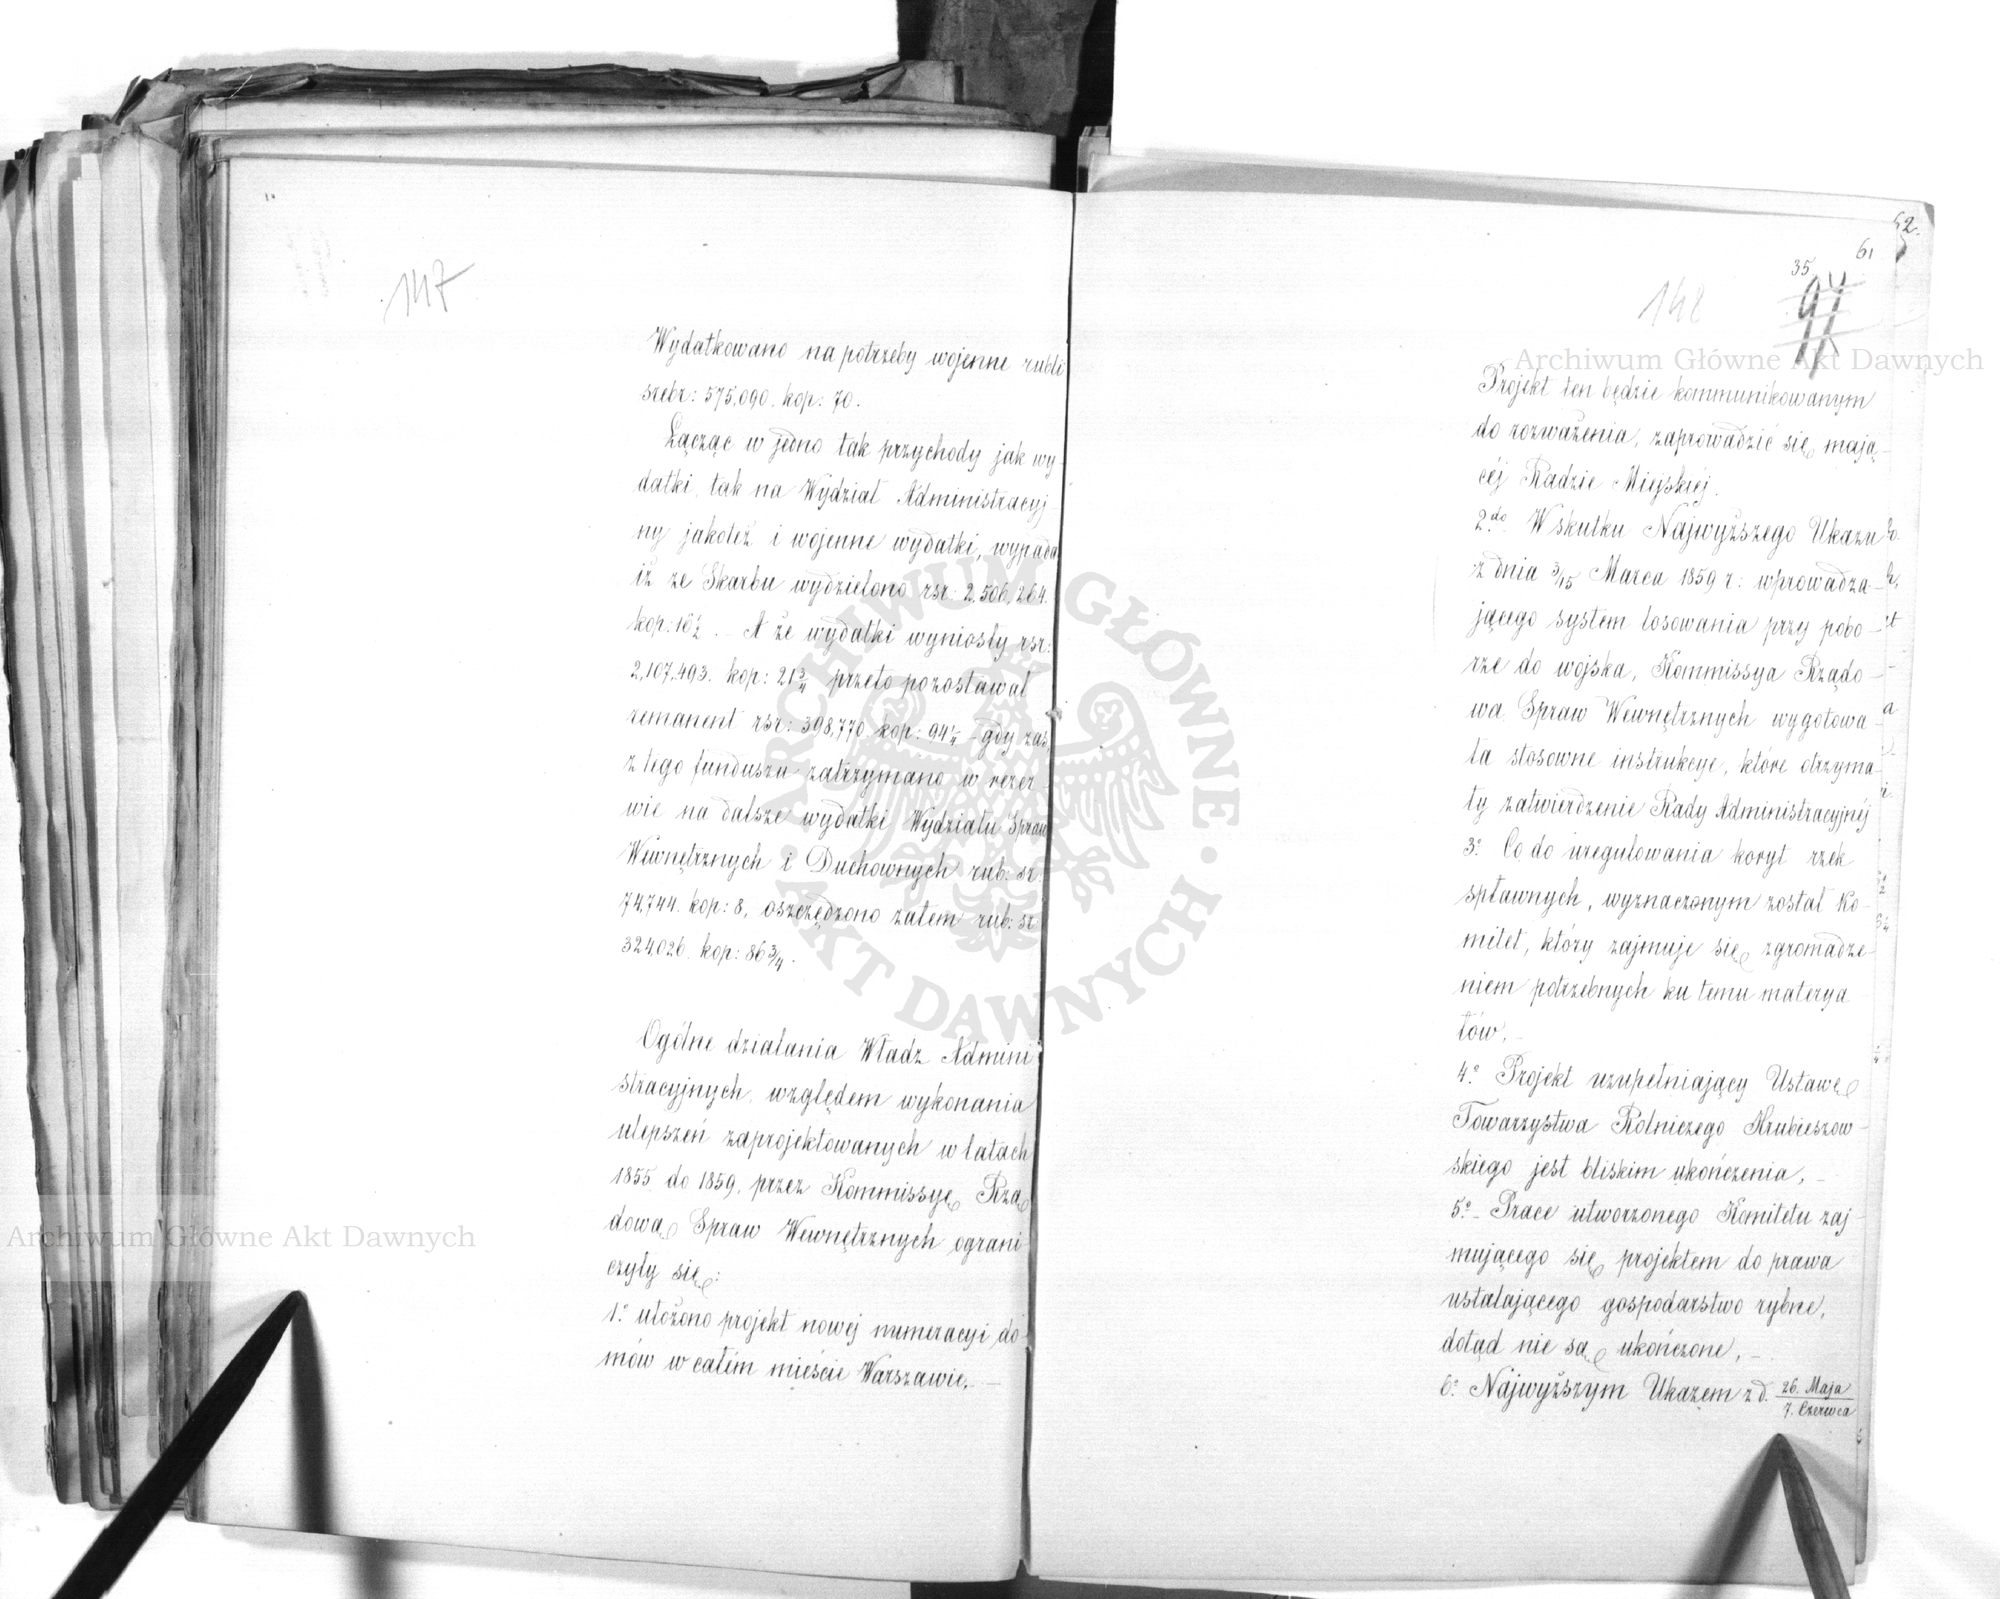 147
Wydatkowano na potrzeby wojenne rubli
srebr: 575,090. kop: 70.
Łącząc w jedno tak przychody jak wy-
datki, tak na Wydział Administracyj
ny jakoteż i wojenne wydatki, wypada
iż ze Skarbu wydzielono rsr: 2,506,264.
kop: 16½. – A że wydatki wyniosły rsr:
2,107,493. kop: 21¾ przeto pozostawał
remanent rsr: 398,770 kop: 94¼ – gdy zaś
z tego funduszu zatrzymano w rezer-
wie na dalsze wydatki Wydziału Spraw
Wewnętrznych i Duchownych rub: sr:
74,744. kop: 8, oszczędzono zatem rub: sr:
324,026. kop: 86¾.
Ogólne działania Władz Admini
stracyjnych, względem wykonania
ulepszeń zaprojektowanych w latach
1855 do 1859. przez Kommissyę Rzą
dową Spraw Wewnętrznych ograni
czyły się:
1.° ułożono projekt nowej numeracyi do-
mów w całém mieście Warszawie. –
62.
61
35.
97
148
Projekt ten będzie kommunikowanym
do rozważenia, zaprowadzić się mają-
céj Radzie Miejskiéj.
2.do Wskutku Najwyższego Ukazu
z dnia 3/15 Marca 1859 r: wprowadza-
jącego system losowania przy pobo-
rze do wojska, Kommissya Rządo-
wa Spraw Wewnętrznych wygotowa-
ła stosowne instrukcye, które otrzyma-
ły zatwierdzenie Rady Administracyjnéj
3.° Co do uregulowania koryt rzek
spławnych, wyznaczonym został Ko-
mitet, który zajmuje się zgromadze-
niem potrzebnych ku temu materya
łów. –
4.° Projekt uzupełniający Ustawę
Towarzystwa Rolniczego Hrubieszow-
skiego jest bliskim ukończenia, –
5.° – Prace utworzonego Komitetu zaj-
mującego się projektem do prawa
ustalającego gospodarstwo rybne,
dotąd nie są ukończone, –
6.° Najwyższym Ukazem z d. 26. Maja
7. Czerwca
Archiwum Główne Akt Dawnych
Archiwum Główne Akt Dawnych
ARCHIWUM GŁÓWNE · AKT DAWNYCH ·